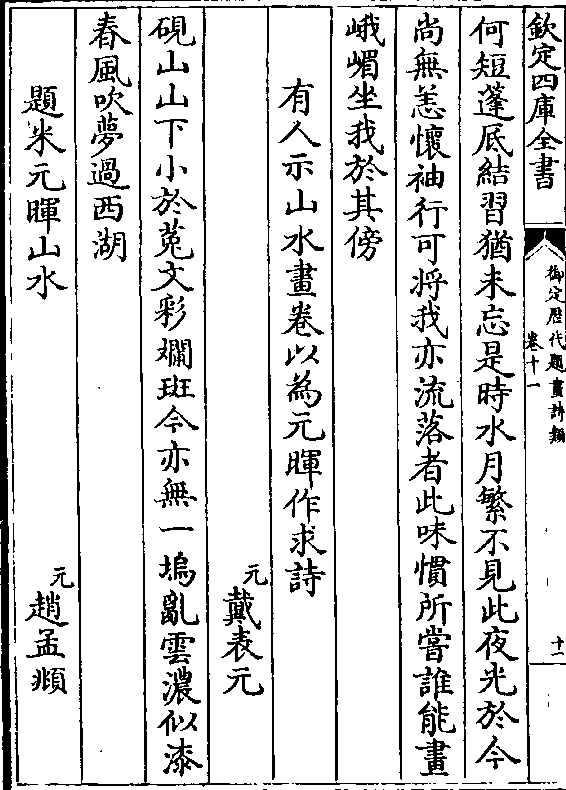 欽定四庫全書
御定歴代題畫詩類
卷十一
十二
何短蓬底結習猶未忘是時水月繁不見此夜光於今
尚無恙懷袖行可將我亦流落者此味慣所嘗誰能畫
峨嵋坐我於其傍
有人示山水畫卷以為元暉作求詩
元戴表元
硯山山下小於菟文彩斕斑今亦無一塢亂雲濃似漆
春風吹夢過西湖
題米元暉山水
元趙孟頫